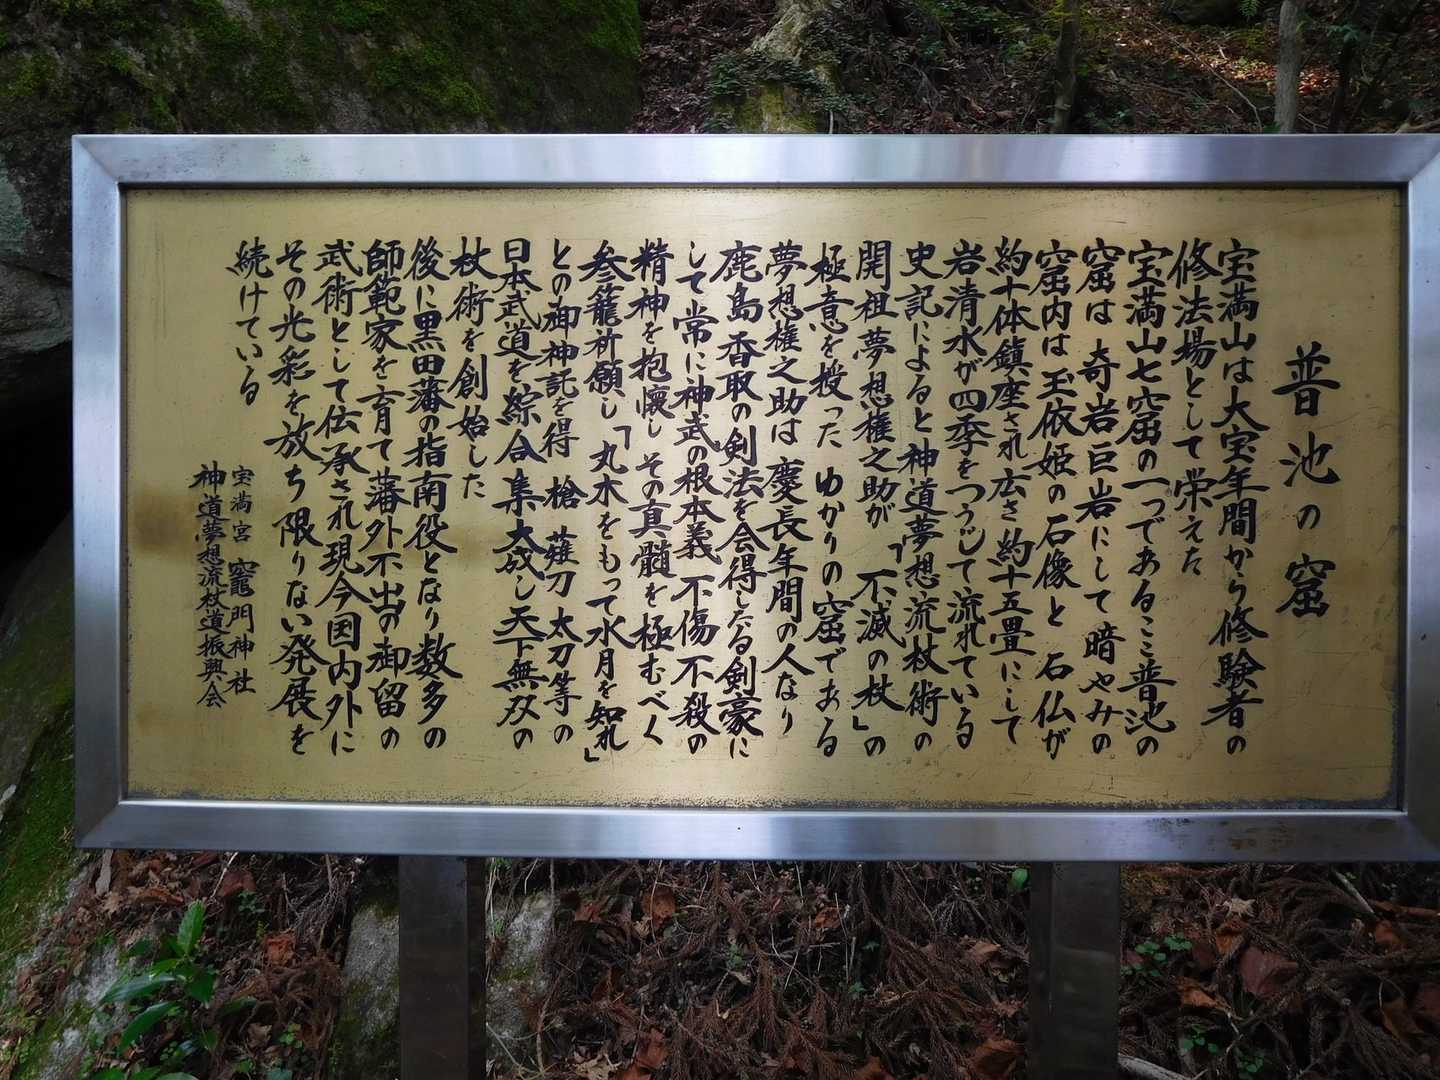 普池の窟
宝満山は大宝年間から修験者の
修法場として栄えた
宝満山七窟の一つであるここ普池の
窟は 奇岩巨岩にして 暗やみの
窟内は玉依姫の石像と 石仏が
約十体鎮座され広さ約十五畳にして
岩清水が四季をつうじて流れている
史記によると神道夢想流杖術の
開祖夢想権之助が「不滅の杖」の
極意を授った ゆかりの窟である
夢想権之助は 慶長年間の人なり
鹿島香取の剣法を会得したる剣豪に
して常に神武の根本義 不傷不殺の
精神を抱懐し その真髄を極むべく
参籠祈願し「丸木をもって水月を知れ」
との御神託を得 槍 薙刀 太刀等の
日本武道を綜合集大成し天下無双の
杖術を創始した
後に黒田藩の指南役となり数多の
師範家を育て藩外不出の御留の
武術として伝承され現今国内外に
その光彩を放ち限りない発展を
続けている
宝満宮 竈門神社
神道夢想流杖道振興会